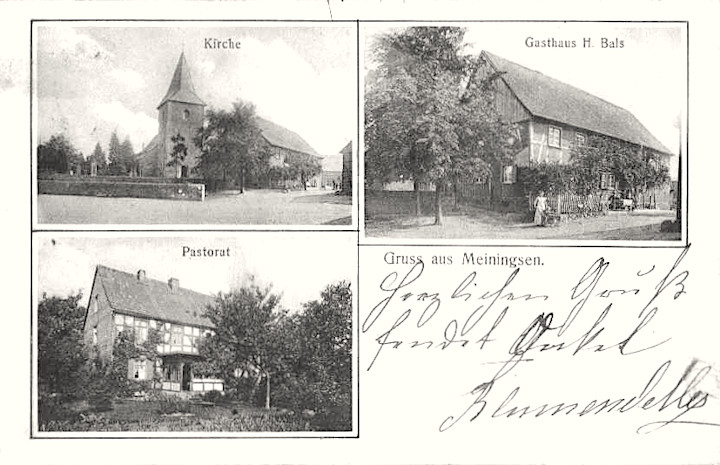 Kirche
Gasthaus H. Bals
Pastorat
Gruss aus Meiningsen.
Herzlichen Gruß
sendet Onkel